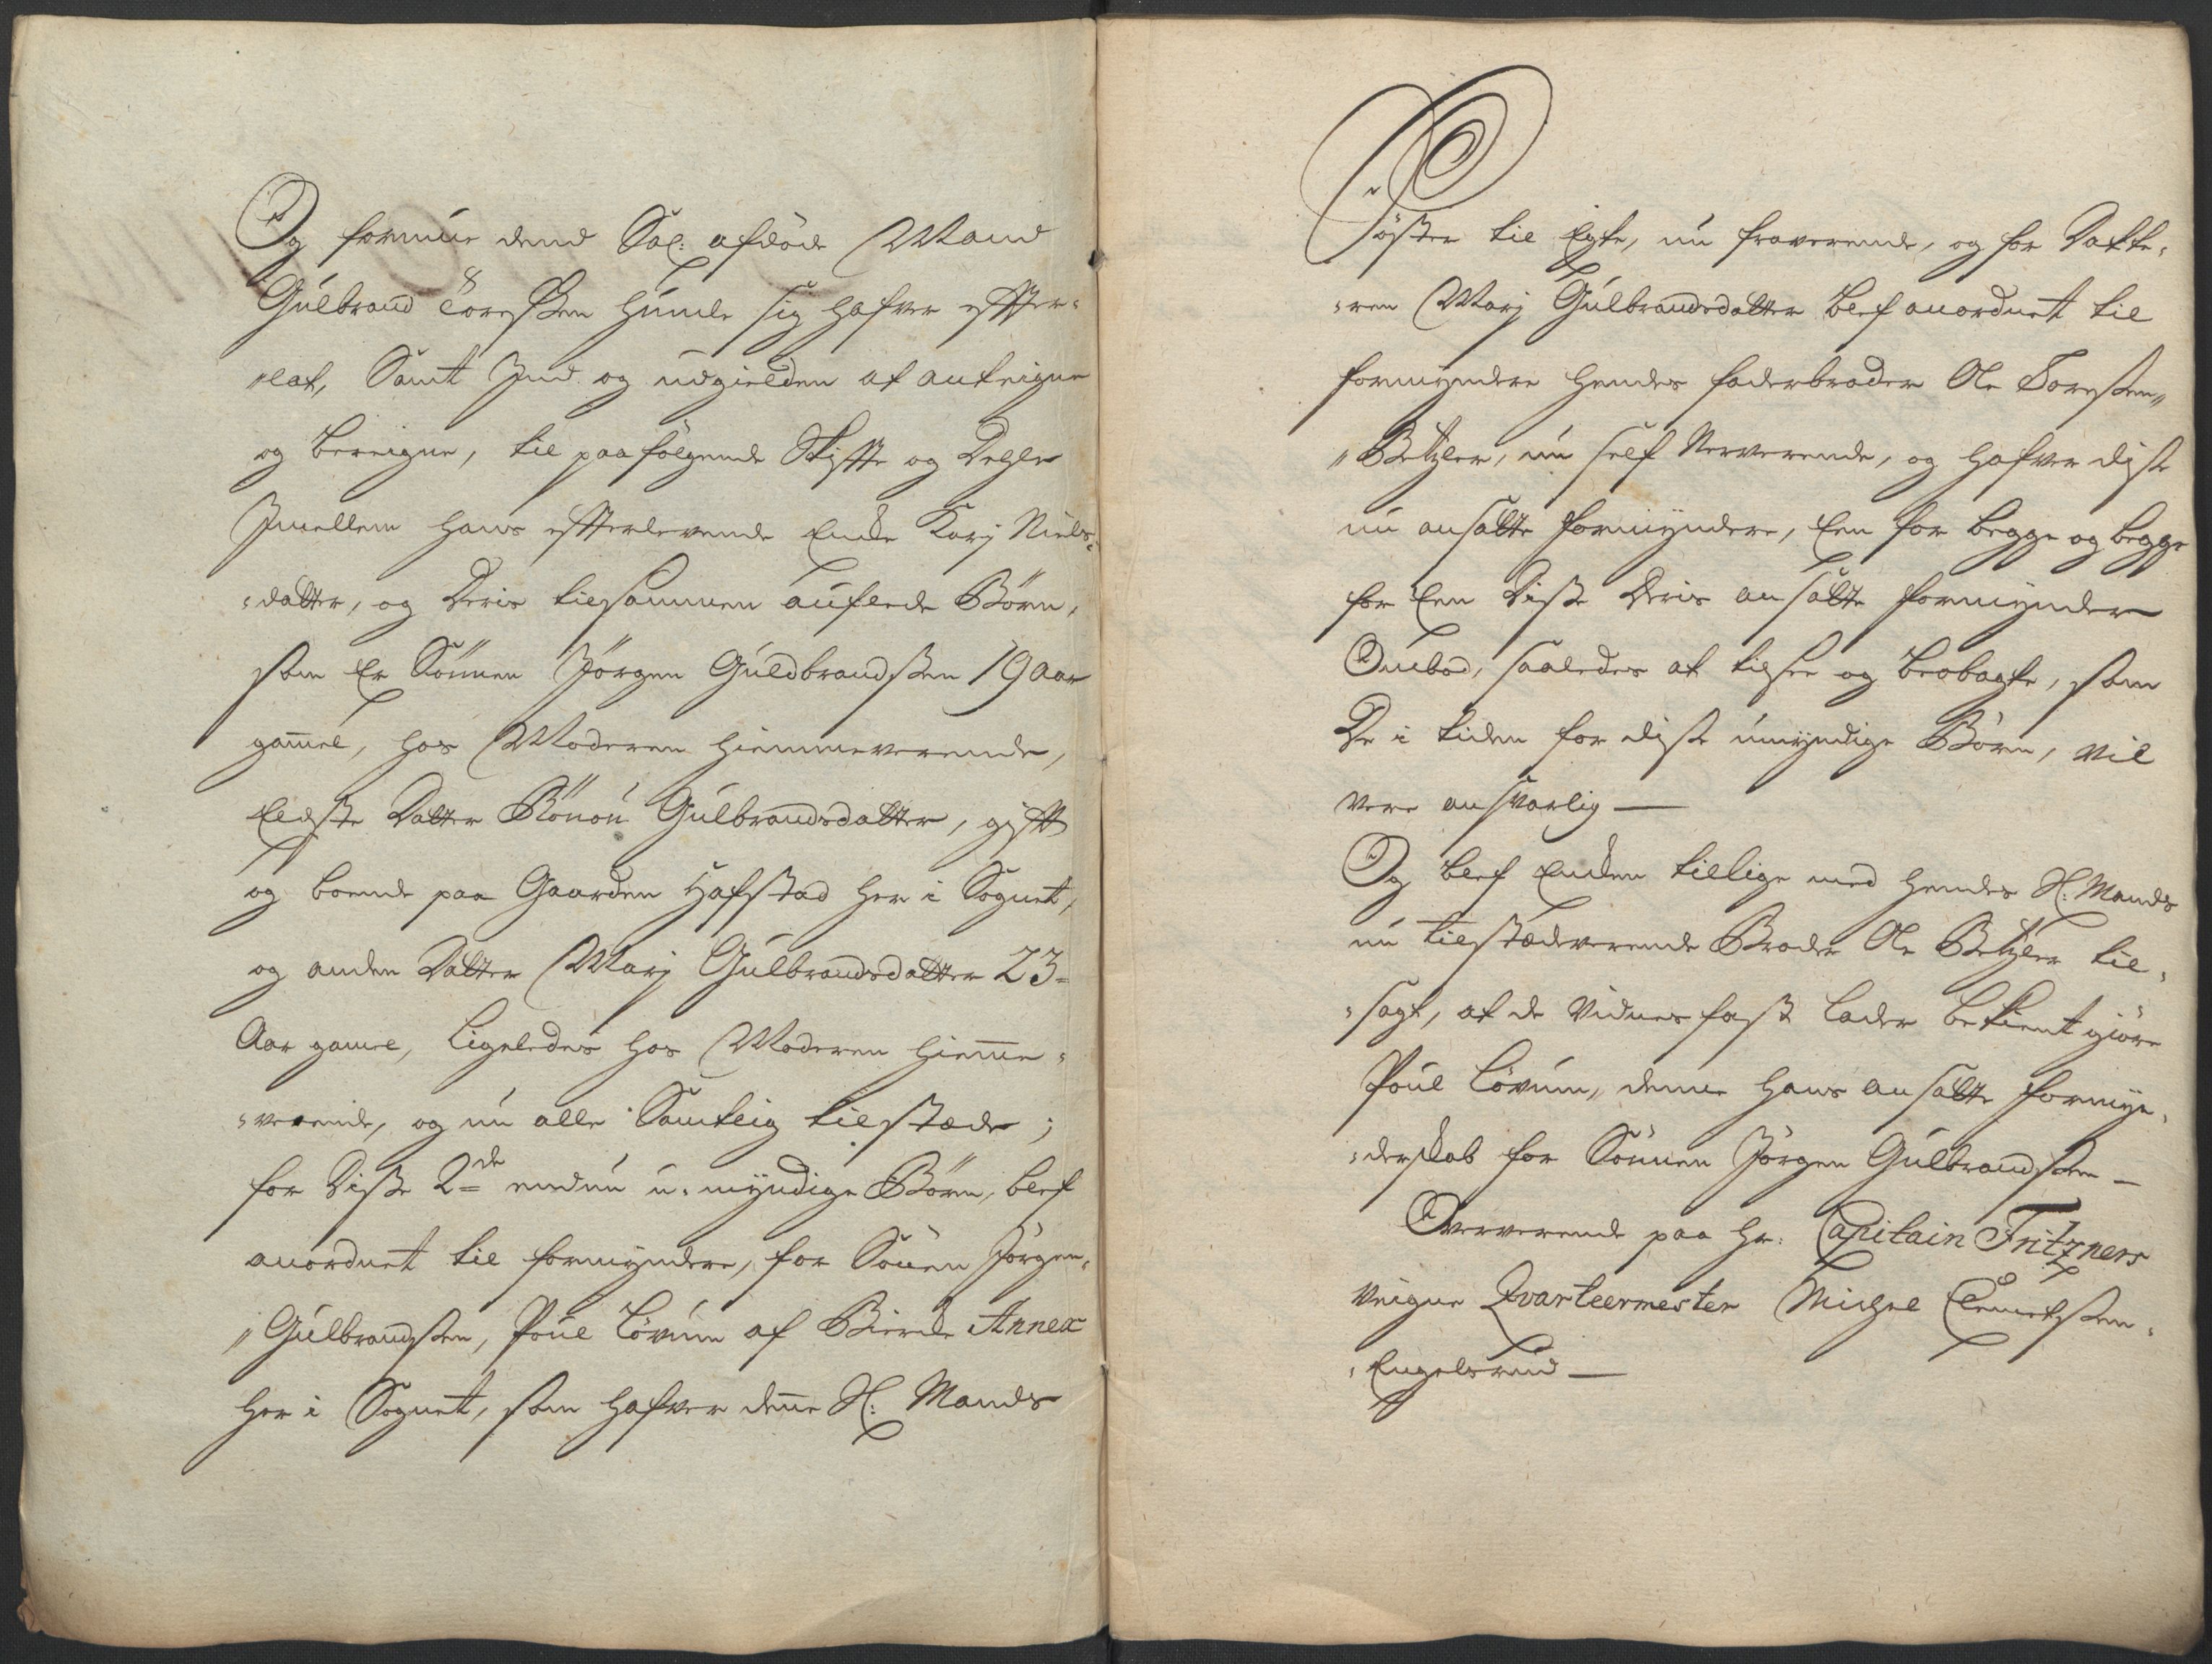 Og formue dend Sal: afdöde Mand
Gulbrand Toresßen hunde sig hafver effter-
"lat, Samt Ind og udgielden at anteigne
og bereigne, til paafölgende Skiffte og Dehle
Imellem hans effterlevende Encke Karj Niels-
"datter, og Deris tilsammen auflede Börn,
som Er Sönnen Jörgen Guldbrandsßen 19 Aar
gamel, hos Moderen hiemmeverende,
Eldste Datter Rönou Gulbrandsdatter, gifft
og boende paa Gaarden Hafstad her i Sognet,
og anden Datter Marj Gulbrandsdatter 23=
Aar gamel, Ligeledes hos Moderen hieme-
"verende, og nu alle Samtlig tilstæde;
for Disße 2de endnu u-myndige Börn, blef
anordnet til formyndere, for Sönen Jörgen-
"Gulbrandsßen, Poul Lövum af Bierche Annex
her i Sognet, som hafver dene Sl: Mands
Söster til Egte, nu fraverende, og for Datte-
"ren Marj Gulbrandsdatter blef anordnet til
formyndere hendes faderbroder Ole Toresßen"
"Betzler, nu self Nerverende, og hafver disße
nu ansatte formyndere, Een for begge og begge
for Een Disße Deris ansatte formynder
Ombod, saaledes at tilsee og beobagte, som
De i tiden for disße umyndige Börn, vil
vere ansvarlig —
Og blef Encken tillige med hendes Sl: Mands
nu tilstædeverende Broder Ole Betzler til-
"sagt, at de Vidnesfast lader bekient giöre
Poul Lövum, denne hans ansatte formyn-
"derskab for Sönnen Jörgen Gulbrandsßen —
Oververende paa Hr: Capitain Fritzners
Veigne Qvarteermester Michel Clemetsßen-
"Engelsrud —